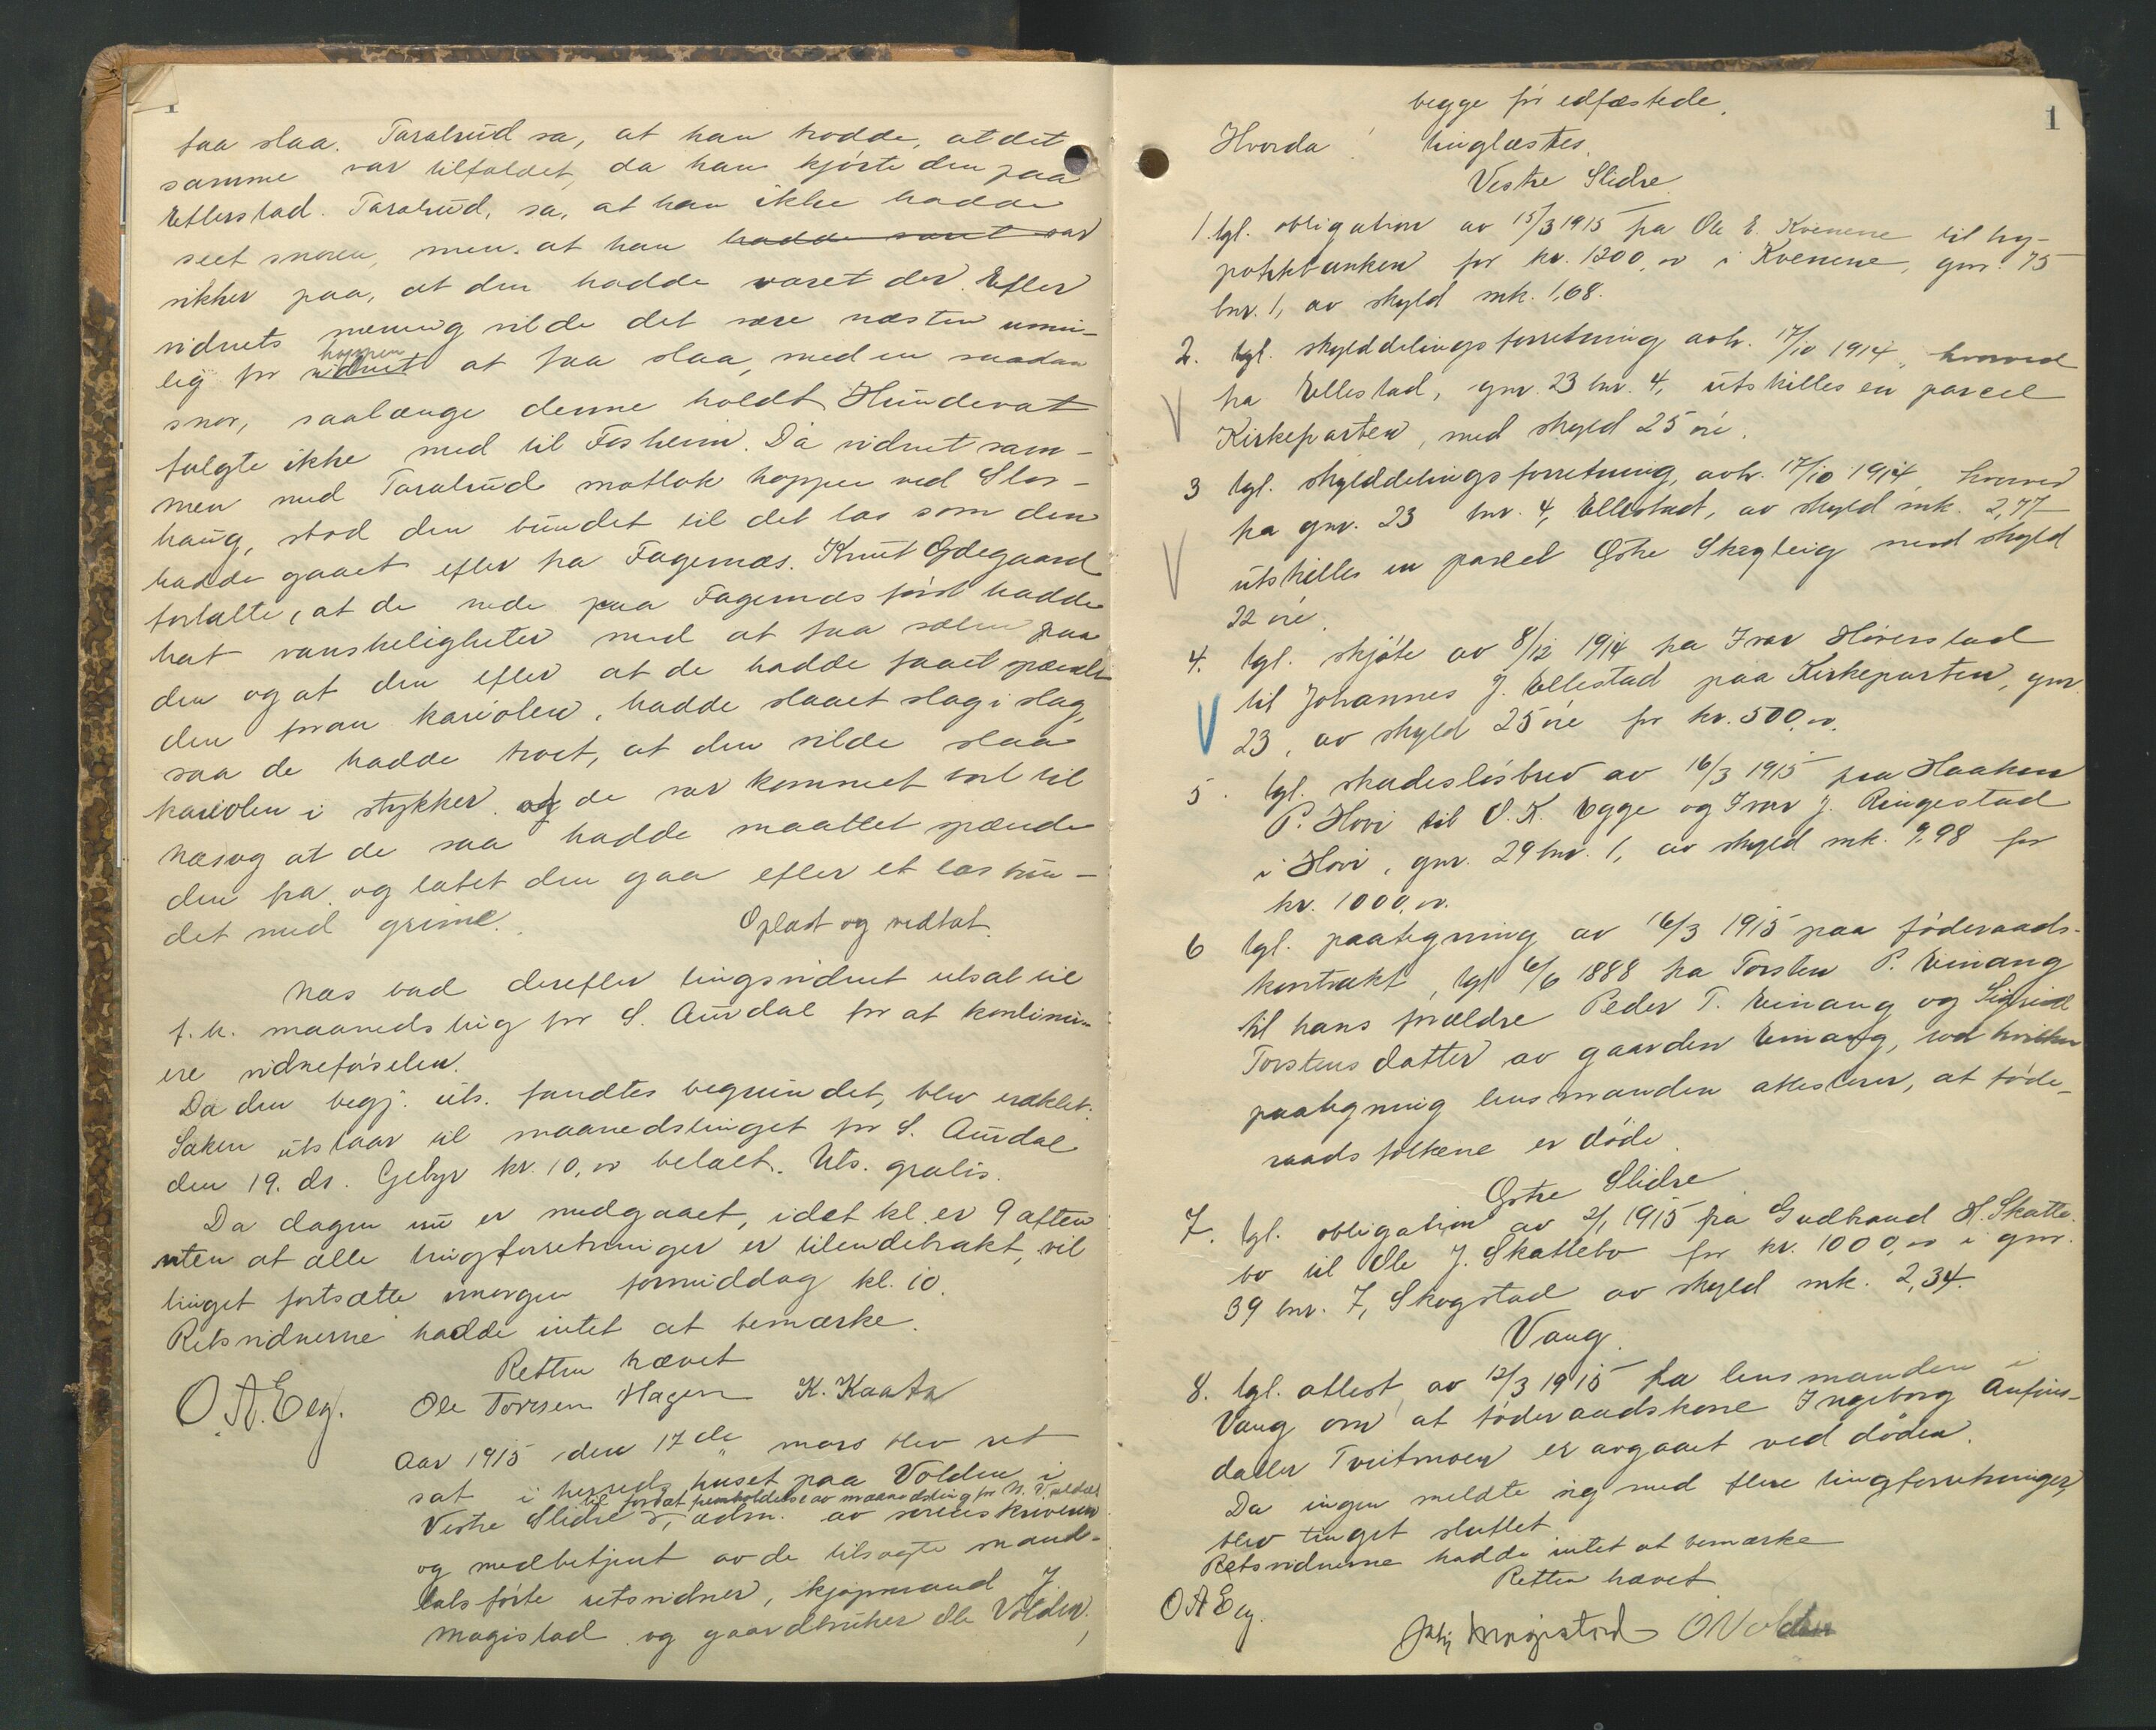 faa slaa. Taralrud sa, at han trodde, at det
samme var tilfældet, da han kjørte den paa
Ellerstad. Taralrud, sa, at han ikke hadde
seet snoren, men at han hadde været var
sikker paa, at den hadde været der. Efter
vidnets mening vilde det være næsten umu-
lig for vidnet hoppen at faa slaa, med en saadan
snor, saalænge denne holdt. Hundevat
fulgte ikke med til Fosheim. Da vidnet sam-
men med Taralrud motlok hoppen ved Slos-
haug, stod den bundet til det las som den
hadde gaaet efter fra Fagernæs. Knut Ødegaard
fortalte, at de nede paa Fagernæs først hadde
hat vanskeligheter med at faa sælen paa
den og at den efter at de hadde faaet spændt
den foran kariolen, hadde slaaet slag i slag,
saa de hadde troet, at den vilde slaa
kariolen i stykker og de var kommet bort til
Næs og at de saa hadde maattet spænde
den fra og latet den gaa efter et las bun-
det med grime.
Oplæst og vedtat.
Næs bad derefter tingsvidnet utsat til
f. k. maanedsting for S. Aurdal for at kontinu-
ere vidneførselen.
Da den begj. uts. fandtes begrundet, blev eraklet:
Saken utstaar til maanedstinget for S. Aurdal
den 19. ds. Gebyr kr. 10,00 betalt. Uts. gratis.
Da dagen nu er medgaaet, idet kl. er 9 aften
uten at alle tingforretninger er tilendebrakt, vil
tinget fortsætte imorgen formiddag kl. 10.
Retsvidnerne hadde intet at bemærke.
Retten hævet
O. A. Eeg. Ole Torresen Hagen K. Kaata
Aar 1915 den 17de mars blev ret
sat i herredshuset paa Volden i
til fortsat henholdelse av maanedsting for N. Valdres
Vestre Slidre, adm. av sorenskriveren
og medbetjent av de tilsagte mand-
talsførte retsvidner, kjøpmand J
Magistad og gaardbruker Ole Volden,
1
begge før edfæstede.
Hvorda tinglæstes.
Vestre Slidre.
1. tgl. obligation av 15/3 1915 fra Ole E. Kvienene til hy-
potekbanken for kr. 1200,00 i Kvenene, gnr. 75
bnr. 1, av skyld mk. 1,68.
2. tgl. skylddelingsforretning avh. 17/10 1914, hvorved
fra Ellestad, gnr. 23 bnr. 4, utskilles en parcel
Kirkeparten, med skyld 25 øre.
3 tgl. skylddelingsforretning, avh. 17/10 1914, hvorved
fra gnr. 23 bnr. 4, Ellestad, av skyld mk. 2,77
utskilles en parcel Østre Skogteig med skyld
22 øre.
4. tgl. skjøte av 8/12 1914 fra Ivar Høverstad
til Johannes J. Ellestad paa Kirkeparten, gnr.
23, av skyld 25 øre for kr. 500,00.
5. tgl. skadesløsbrev av 16/3 1915 fra Haaken
P. Hovi til O. K. Egge og Ivar J. Ringestad
i Hovi, gnr. 29 bnr. 1, av skyld mk. 9,98 for
kr. 1000,00.
6 tgl. paategning av 16/3 1915 paa føderaads-
kontrakt, tgl 6/6 1888 fra Torsten P. Einang
til hans forældre Peder T. Einang og Sigrid
Torstensdatter av gaarden Einang, ved hvilken
paategning lensmanden attesterer, at føde-
raadsfolkene er døde.
Østre Slidre
7. tgl. obligation av 2/1 1915 fra Gudbrand H. Skatte-
bo til Ole J. Skattebo for kr. 1000,00 i gnr.
39 bnr. 7, Skogstad av skyld mk. 2,34.
Vang.
8. tgl. attest av 12/3 1915 fra lensmanden i
Vang om at føderaadskone Ingeborg Anfins-
datter Tveitmoen er avgaaet ved døden.
Da ingen meldte sig med flere tingforretninger,
blev tinget sluttet.
Retsvidnerne hadde intet at bemærke
Retten hævet
O A Eeg. Magistad O Volden